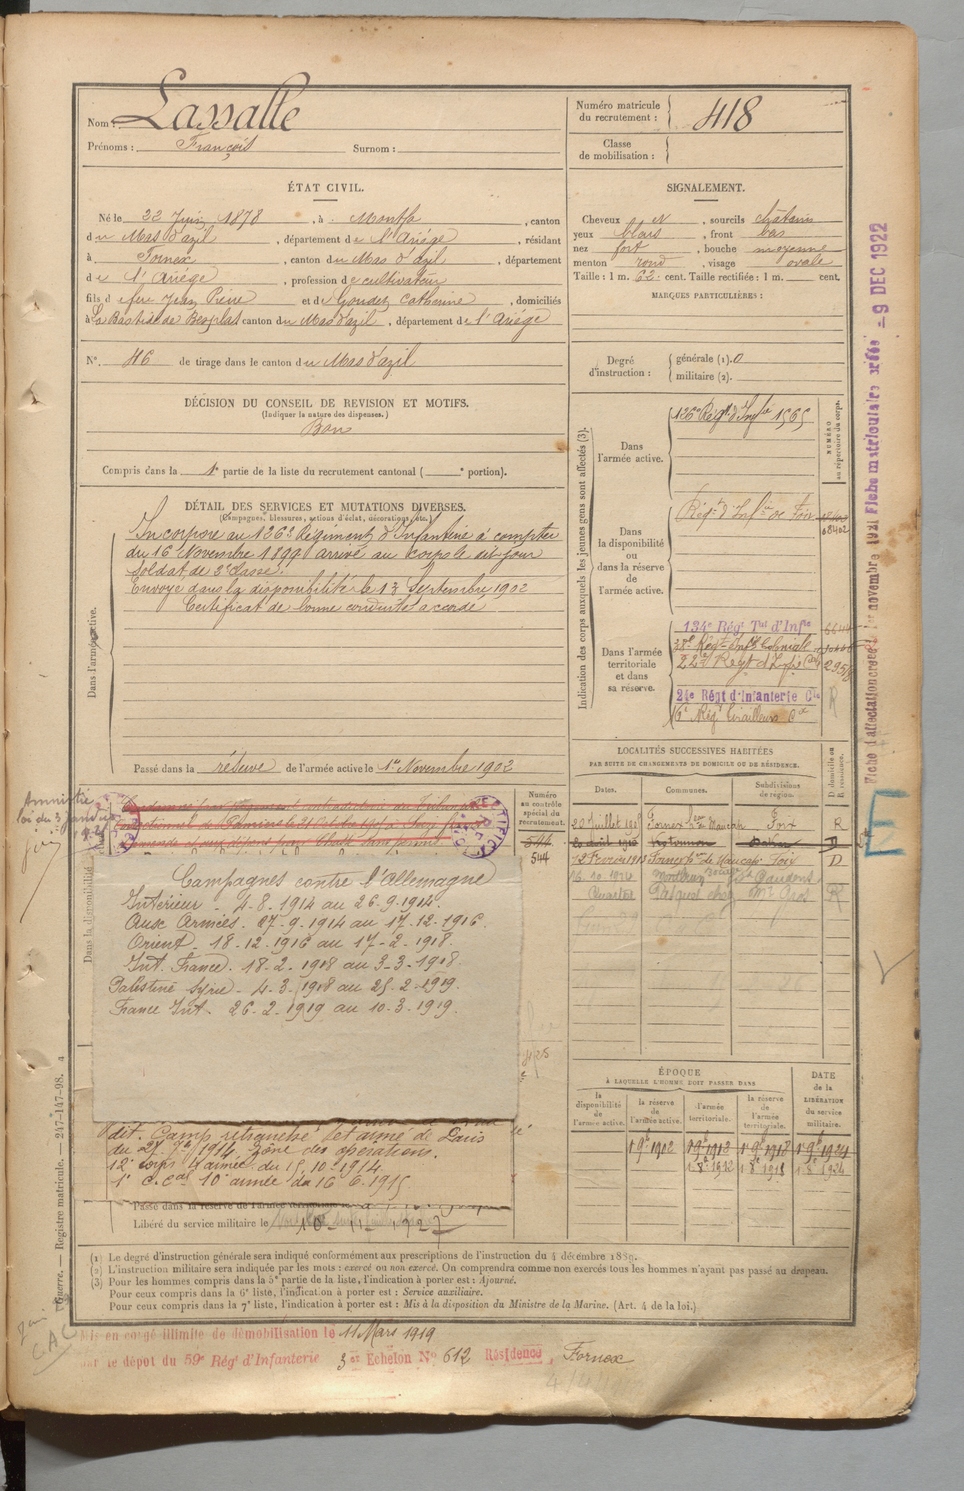 Nom : Lassalle
Prénoms : François Surnom :
Numéro matricule du recrutement : 418
Classe de mobilisation :
ÉTAT CIVIL.
Né le 22 Juin 1878, à Montfa, canton
du Mas d'azil, département de l'Ariège, résidant
à Fornex, canton du Mas d'azil, département
de l'Ariège, profession de cultivateur
fils de feu Jean Pierre et de Goudez Catherine, domiciliés
à La Bastide de Besplas canton du Mas d'azil, département de l'Ariège
N° 46 de tirage dans le canton du Mas d'azil
SIGNALEMENT.
Cheveux N, sourcils châtains
yeux bleus, front bas
nez fort, bouche moyenne
menton rond, visage ovale
Taille : 1 m. 62 cent. Taille rectifiée : 1 m. cent.
MARQUES PARTICULIÈRES :
Degré d'instruction : générale (1). 0
militaire (2).
DÉCISION DU CONSEIL DE REVISION ET MOTIFS.
(Indiquer la nature des dispenses.)
Bon
Compris dans la 1e partie de la liste du recrutement cantonal ( e portion).
DÉTAIL DES SERVICES ET MUTATIONS DIVERSES.
(Campagnes, blessures, actions d'éclat, décorations, etc.)
Dans l'armée active.
Incorporé au 126e Régiment d'Infanterie à compter
du 16 Novembre 1899 arrivé au corps le dit jour
Soldat de 2e classe.
Envoyé dans la disponibilité le 13 Septembre 1902
Certificat de bonne conduite accordé
Passé dans la réserve de l'armée active le 1er Novembre 1902
Indication des corps auxquels les jeunes gens sont affectés (3).
NUMÉRO au répertoire du corps.
Dans l'armée active.
126e Régt d'Infie 1565
Dans la disponibilité ou dans la réserve de l'armée active.
Régt d'Infie de Foix
08402
Dans l'armée territoriale et dans sa réserve.
134e Régt Tal d'Infie
38e Régt Infie Coloniale
22e Régt d'Infie Cale
24e Régt d'Infanterie Cle
16e Régt Tirailleurs
R
Fiche matriculaire
-9 DEC 1922
LOCALITÉS SUCCESSIVES HABITÉES
PAR SUITE DE CHANGEMENTS DE DOMICILE OU DE RÉSIDENCE.
Dates. Communes. Subdivisions de région. D domicile ou R résidence.
Fornex Foix R
12 Février 1913 Fornex Foix D
R
Numéro au contrôle spécial du recrutement.
544
544
Amnistie
loi du 3 janvier
Dans la disponibilité
Campagnes contre l'Allemagne
Intérieur - 4.8.1914 au 26.9.1914.
Aux Armées. 27.9.1914 au 17.12.1916
Orient. 18.12.1916 au 17-2.1918.
Int. France. 18-2.1918 au 3-3-1918.
Palestine Syrie - 4-3-1918 au 25-2-1919.
France Int. 26-2-1919 au 10-3-1919.
dit. Camp retranché et armé de Paris
du 27 7bre 1914, zône des opérations.
12e corps 4e armée du 15.10.1914.
1er c. cal 10e armée du 16.6.1915
Passé dans la réserve de l'armée territoriale
Libéré du service militaire le 10-11-1927
ÉPOQUE
À LAQUELLE L'HOMME DOIT PASSER DANS
la disponibilité de l'armée active.
la réserve de l'armée active.
l'armée territoriale.
la réserve de l'armée territoriale.
DATE de la LIBÉRATION du service militaire.
1er 9bre 1902 1er 9bre 1912 1er 9bre 1918 1er 9bre 1924
1er 8bre 1912 1er 8bre 1918 1er 8bre 1924
(1) Le degré d'instruction générale sera indiqué conformément aux prescriptions de l'instruction du 4 décembre 1889.
(2) L'instruction militaire sera indiquée par les mots : exercé ou non exercé. On comprendra comme non exercés tous les hommes n'ayant pas passé au drapeau.
(3) Pour les hommes compris dans la 5e partie de la liste, l'indication à porter est : Ajourné.
Pour ceux compris dans la 6e liste, l'indication à porter est : Service auxiliaire.
Pour ceux compris dans la 7e liste, l'indication à porter est : Mis à la disposition du Ministre de la Marine. (Art. 4 de la loi.)
Guerre. — Registre matricule. — 247-147-98.
Mis en congé illimité de démobilisation le 11 Mars 1919
par le dépôt du 59e Régt d'Infanterie 3e Echelon N° 612 Résidence, Fornex